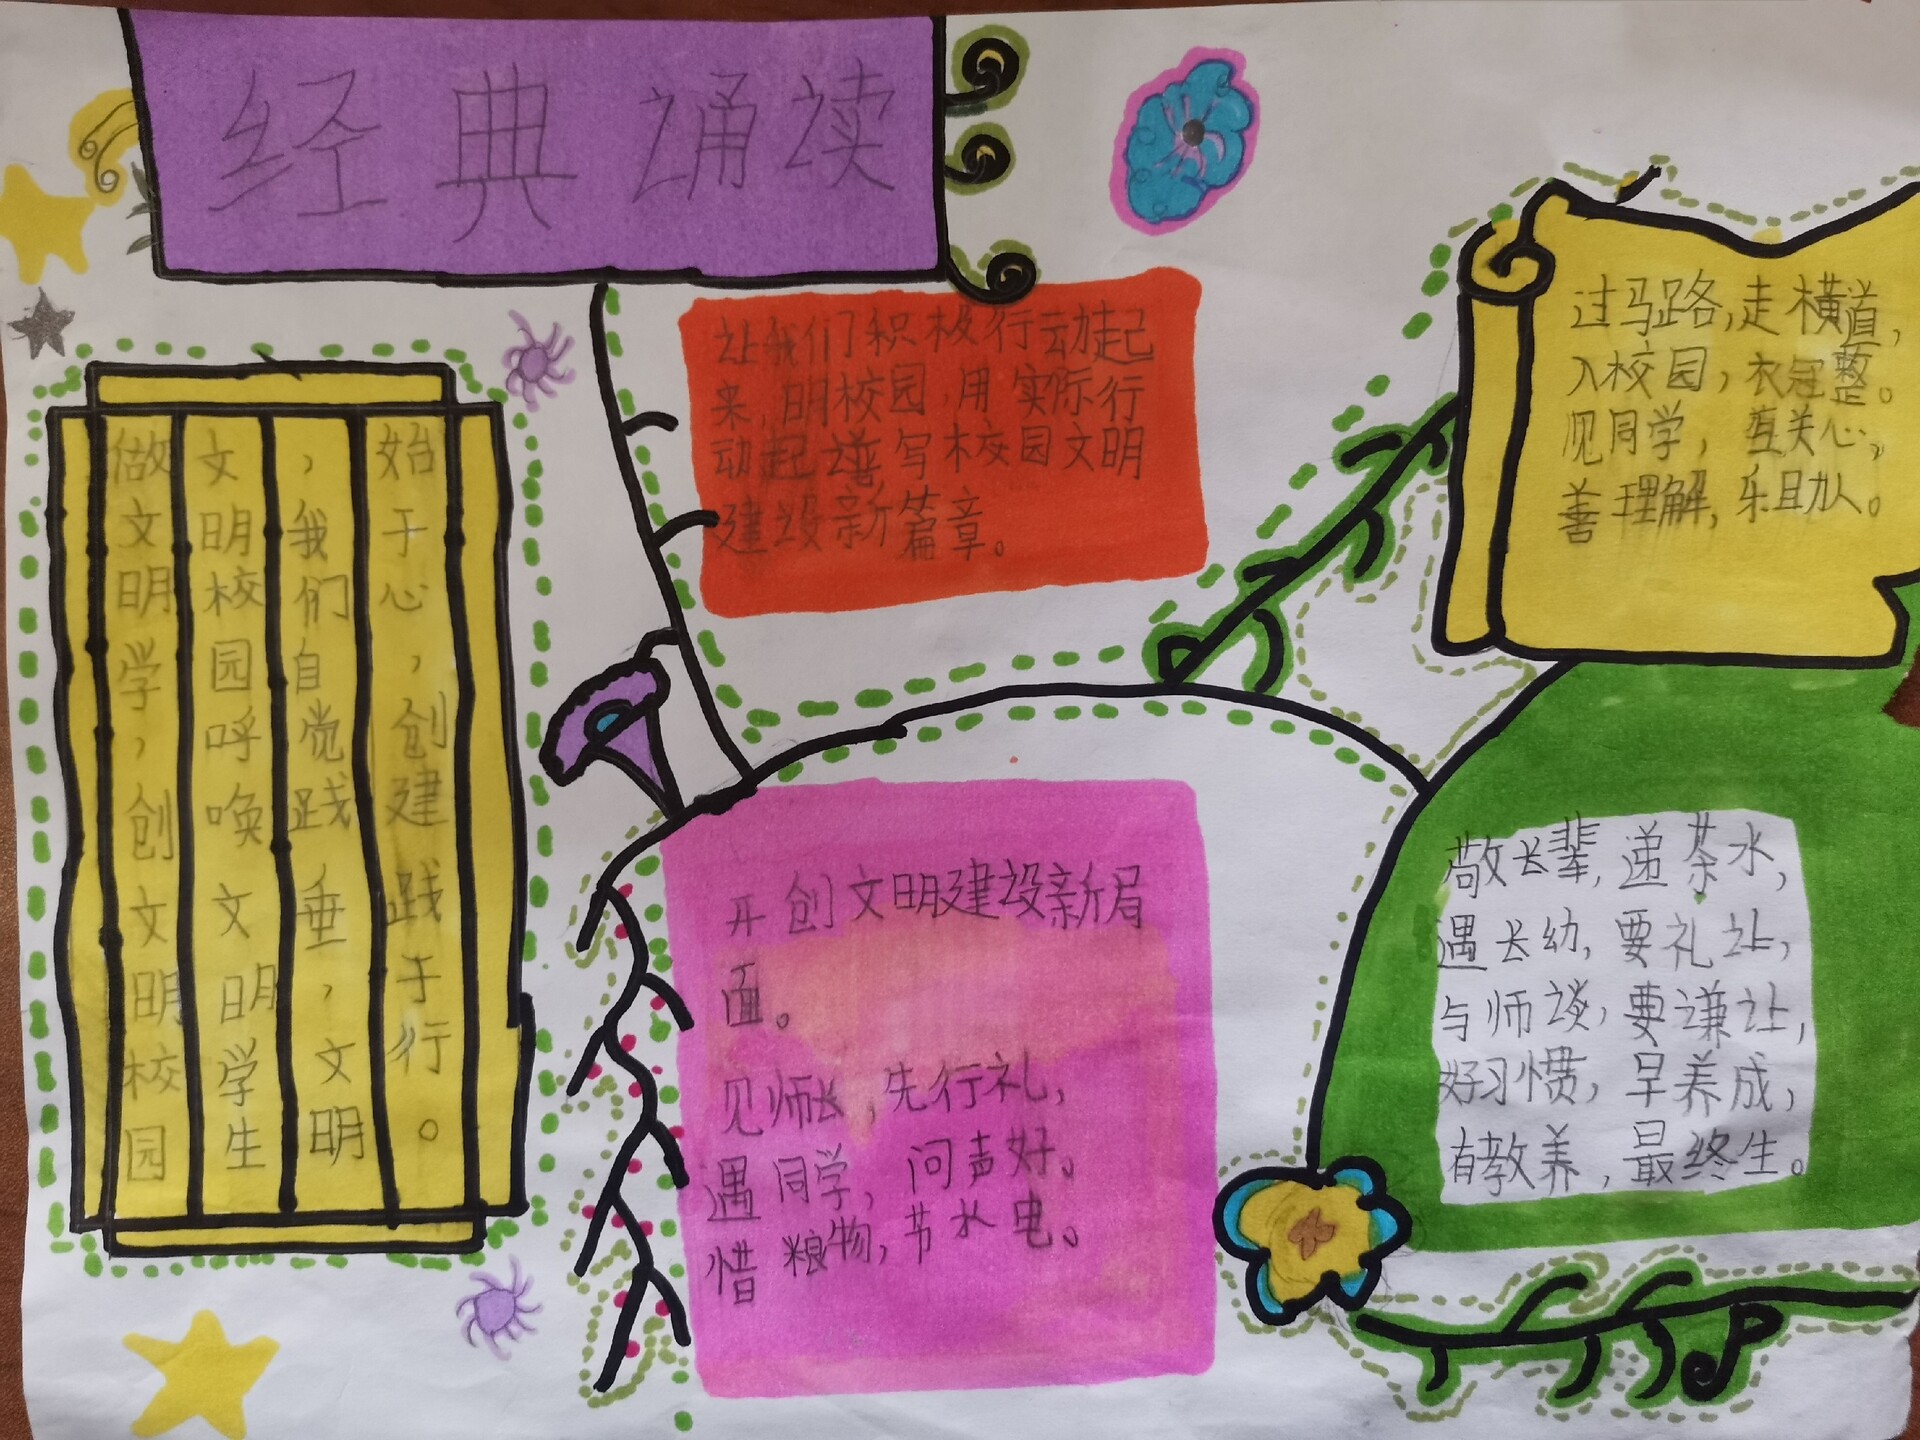 经典诵读
让我们积极行动起
来,明校园,用实际行
动起谱写校园文明
建设新篇章。
过马路,走横道,
入校园,衣冠整。
见同学,互关心,
善理解,乐助人。
做文明学,创文明校园
文明校园呼唤文明学生
,我们自觉践垂,文明
始于心,创建践于行。
开创文明建设新局
面。
见师长,先行礼,
遇同学,问声好。
惜粮物,节水电。
敬长辈,递茶水,
遇长幼,要礼让,
与师谈,要谦让,
好习惯,早养成,
有教养,最终生。